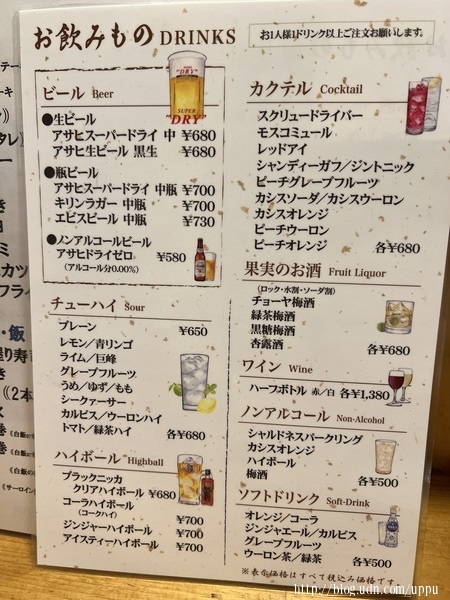 お飲みもの DRINKS
お1人様1ドリンク以上ご注文お願いします。
ビール Beer
"DRY"
SUPER
"DRY"
●生ビール
アサヒスーパードライ 中 ¥680
アサヒ生ビール 黒生 ¥680
●瓶ビール
アサヒスーパードライ 中瓶 ¥700
キリンラガー 中瓶 ¥700
エビスビール 中瓶 ¥730
●ノンアルコールビール
アサヒドライゼロ ¥580
(アルコール分0.00%)
チューハイ Sour
プレーン ¥650
レモン/青リンゴ
ライム/巨峰
グレープフルーツ
うめ/ゆず/もも
シークァーサー
カルピス/ウーロンハイ
トマト/緑茶ハイ 各¥680
ハイボール Highball
ブラックニッカ
クリアハイボール ¥680
コーラハイボール
(コークハイ) ¥700
ジンジャーハイボール ¥700
アイスティーハイボール ¥700
カクテル Cocktail
スクリュードライバー
モスコミュール
レッドアイ
シャンディーガフ/ジントニック
ピーチグレープフルーツ
カシスソーダ/カシスウーロン
カシスオレンジ
ピーチウーロン
ピーチオレンジ 各¥680
果実のお酒 Fruit Liquor
(ロック・水割・ソーダ割)
チョーヤ梅酒
緑茶梅酒
黒糖梅酒
杏露酒 各¥680
ワイン Wine
ハーフボトル 赤/白 各¥1,380
ノンアルコール Non-Alcohol
シャルドネスパークリング
カシスオレンジ
ハイボール
梅酒 各¥500
ソフトドリンク Soft-Drink
オレンジ/コーラ
ジンジャエール/カルピス
グレープフルーツ
ウーロン茶/緑茶 各¥500
※表示価格はすべて税込み価格です
http://blog.udn.com/uppu